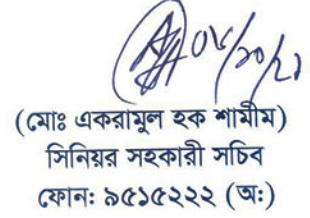 ০৮/১০/২১
(মোঃ একরামুল হক শামীম)
সিনিয়র সহকারী সচিব
ফোন: ৯৫১৫২২২ (অ:)